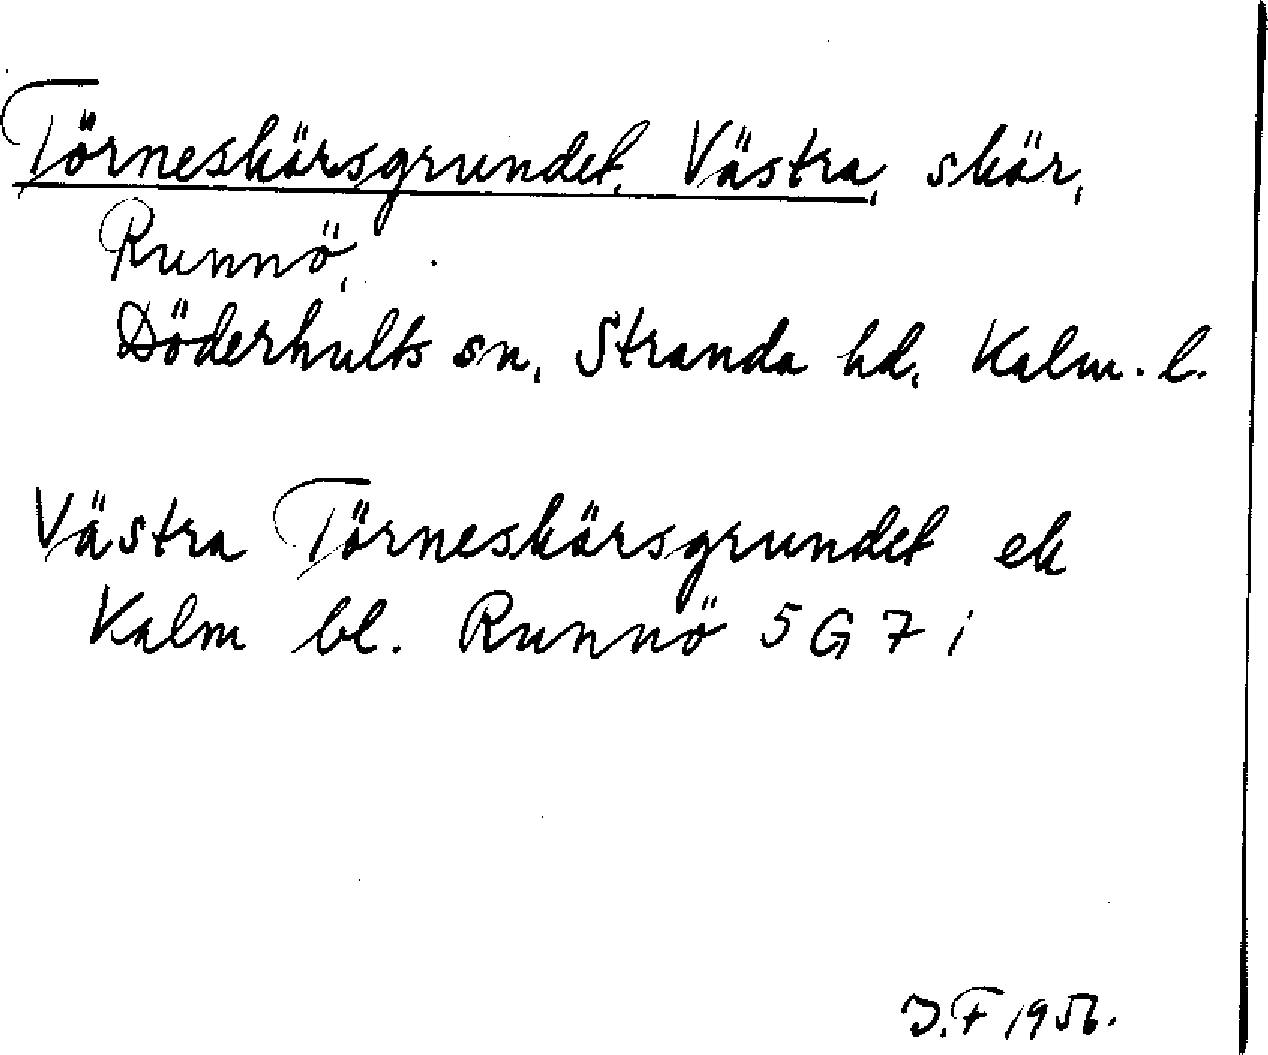 Törneskärsgrundet, Västra, skär,
Runnö,
Döderhults sn, Stranda hd, Kalm. l.
Västra Törneskärsgrundet ek
Kalm bl. Runnö 5 G 7 i
J.F 1956.